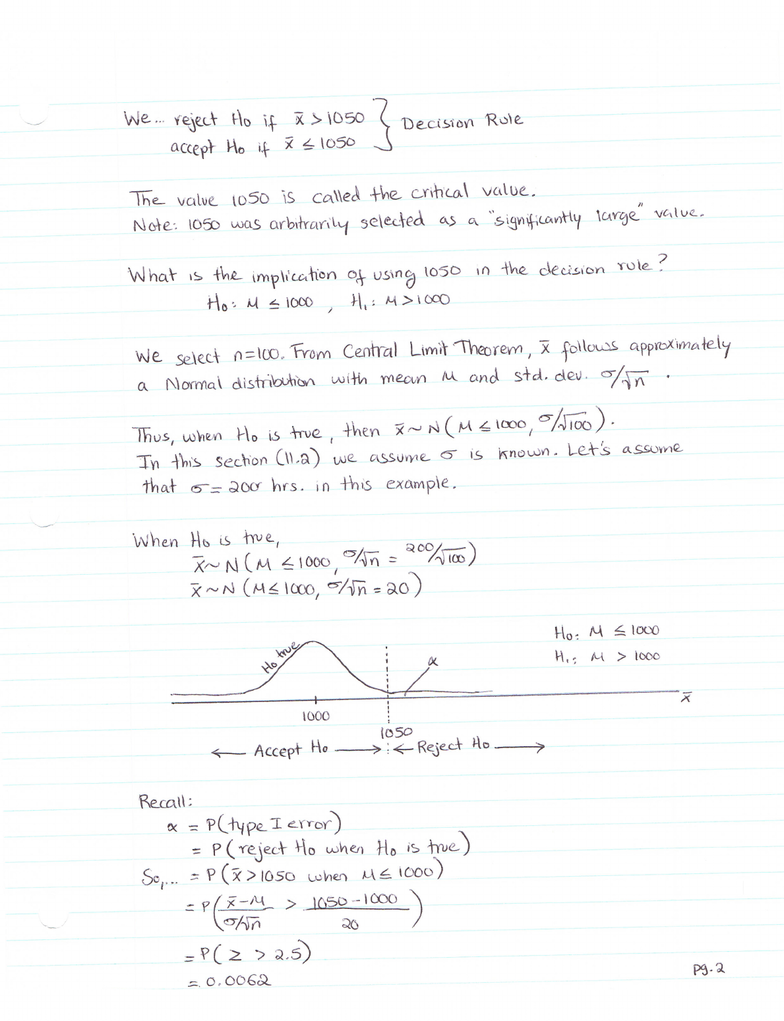 We... reject Ho if x̄ > 1050 } Decision Rule
accept Ho if x̄ ≤ 1050
The value 1050 is called the critical value.
Note: 1050 was arbitrarily selected as a "significantly large" value.
What is the implication of using 1050 in the decision rule?
Ho: M ≤ 1000 , H₁: M > 1000
We select n=100. From Central Limit Theorem, x̄ follows approximately
a Normal distribution with mean M and std. dev. σ/√n .
Thus, when Ho is true, then x̄ ~ N(M ≤ 1000, σ/√100).
In this section (11.2) we assume σ is known. Let's assume
that σ = 200 hrs. in this example.
When Ho is true,
x̄ ~ N(M ≤ 1000, σ/√n = 200/√100)
x̄ ~ N(M ≤ 1000, σ/√n = 20)
Ho: M ≤ 1000
H₁: M > 1000
Ho true
α
x̄
1000
1050
← Accept Ho → ← Reject Ho →
Recall:
α = P(type I error)
= P(reject Ho when Ho is true)
So,... = P(x̄ > 1050 when M ≤ 1000)
= P(x̄-M / σ/√n > 1050-1000 / 20)
= P(Z > 2.5)
= 0.0062
pg. 2